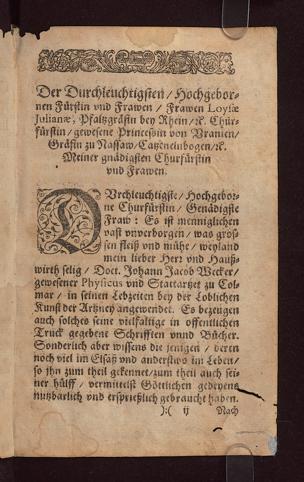 Der Durchleuchtigsten / Hochgebor-
nen Fürstin vnd Frawen / Frawen Loysæ
Julianæ, Pfaltzgräfin bey Rhein / ꝛc. Chur-
fürstin / gewesene Princessin von Vranien /
Gräfin zu Nassaw / Catzenelnbogen / ꝛc.
Meiner gnädigsten Churfürstin
vnd Frawen.
DVrchleuchtigste / Hochgebor-
ne Churfürstin / Genädigste
Fraw : Es ist menniglichen
vast vnverborgen / was gros-
sen fleiß vnd mühe / weyland
mein lieber Herr vnd Hauß-
wirth selig / Doct. Johann Jacob Wecker /
gewesener Physicus vnd Stattartzet zu Col-
mar / in seinen Lebzeiten bey der Loblichen
Kunst der Artzney angewendet. Es bezeugen
auch solches seine vilfaltige in offentlichen
Truck gegebene Schrifften vnnd Bücher.
Sonderlich aber wissens die jenigen / deren
noch viel im Elsaß vnd anderstwo im Leben /
so jhn zum theil gekennet / zum theil auch sei-
ner hülff / vermittelst Göttlichen gedeyens
nutzbarlich vnd ersprießlich gebraucht haben.
):( ij Nach